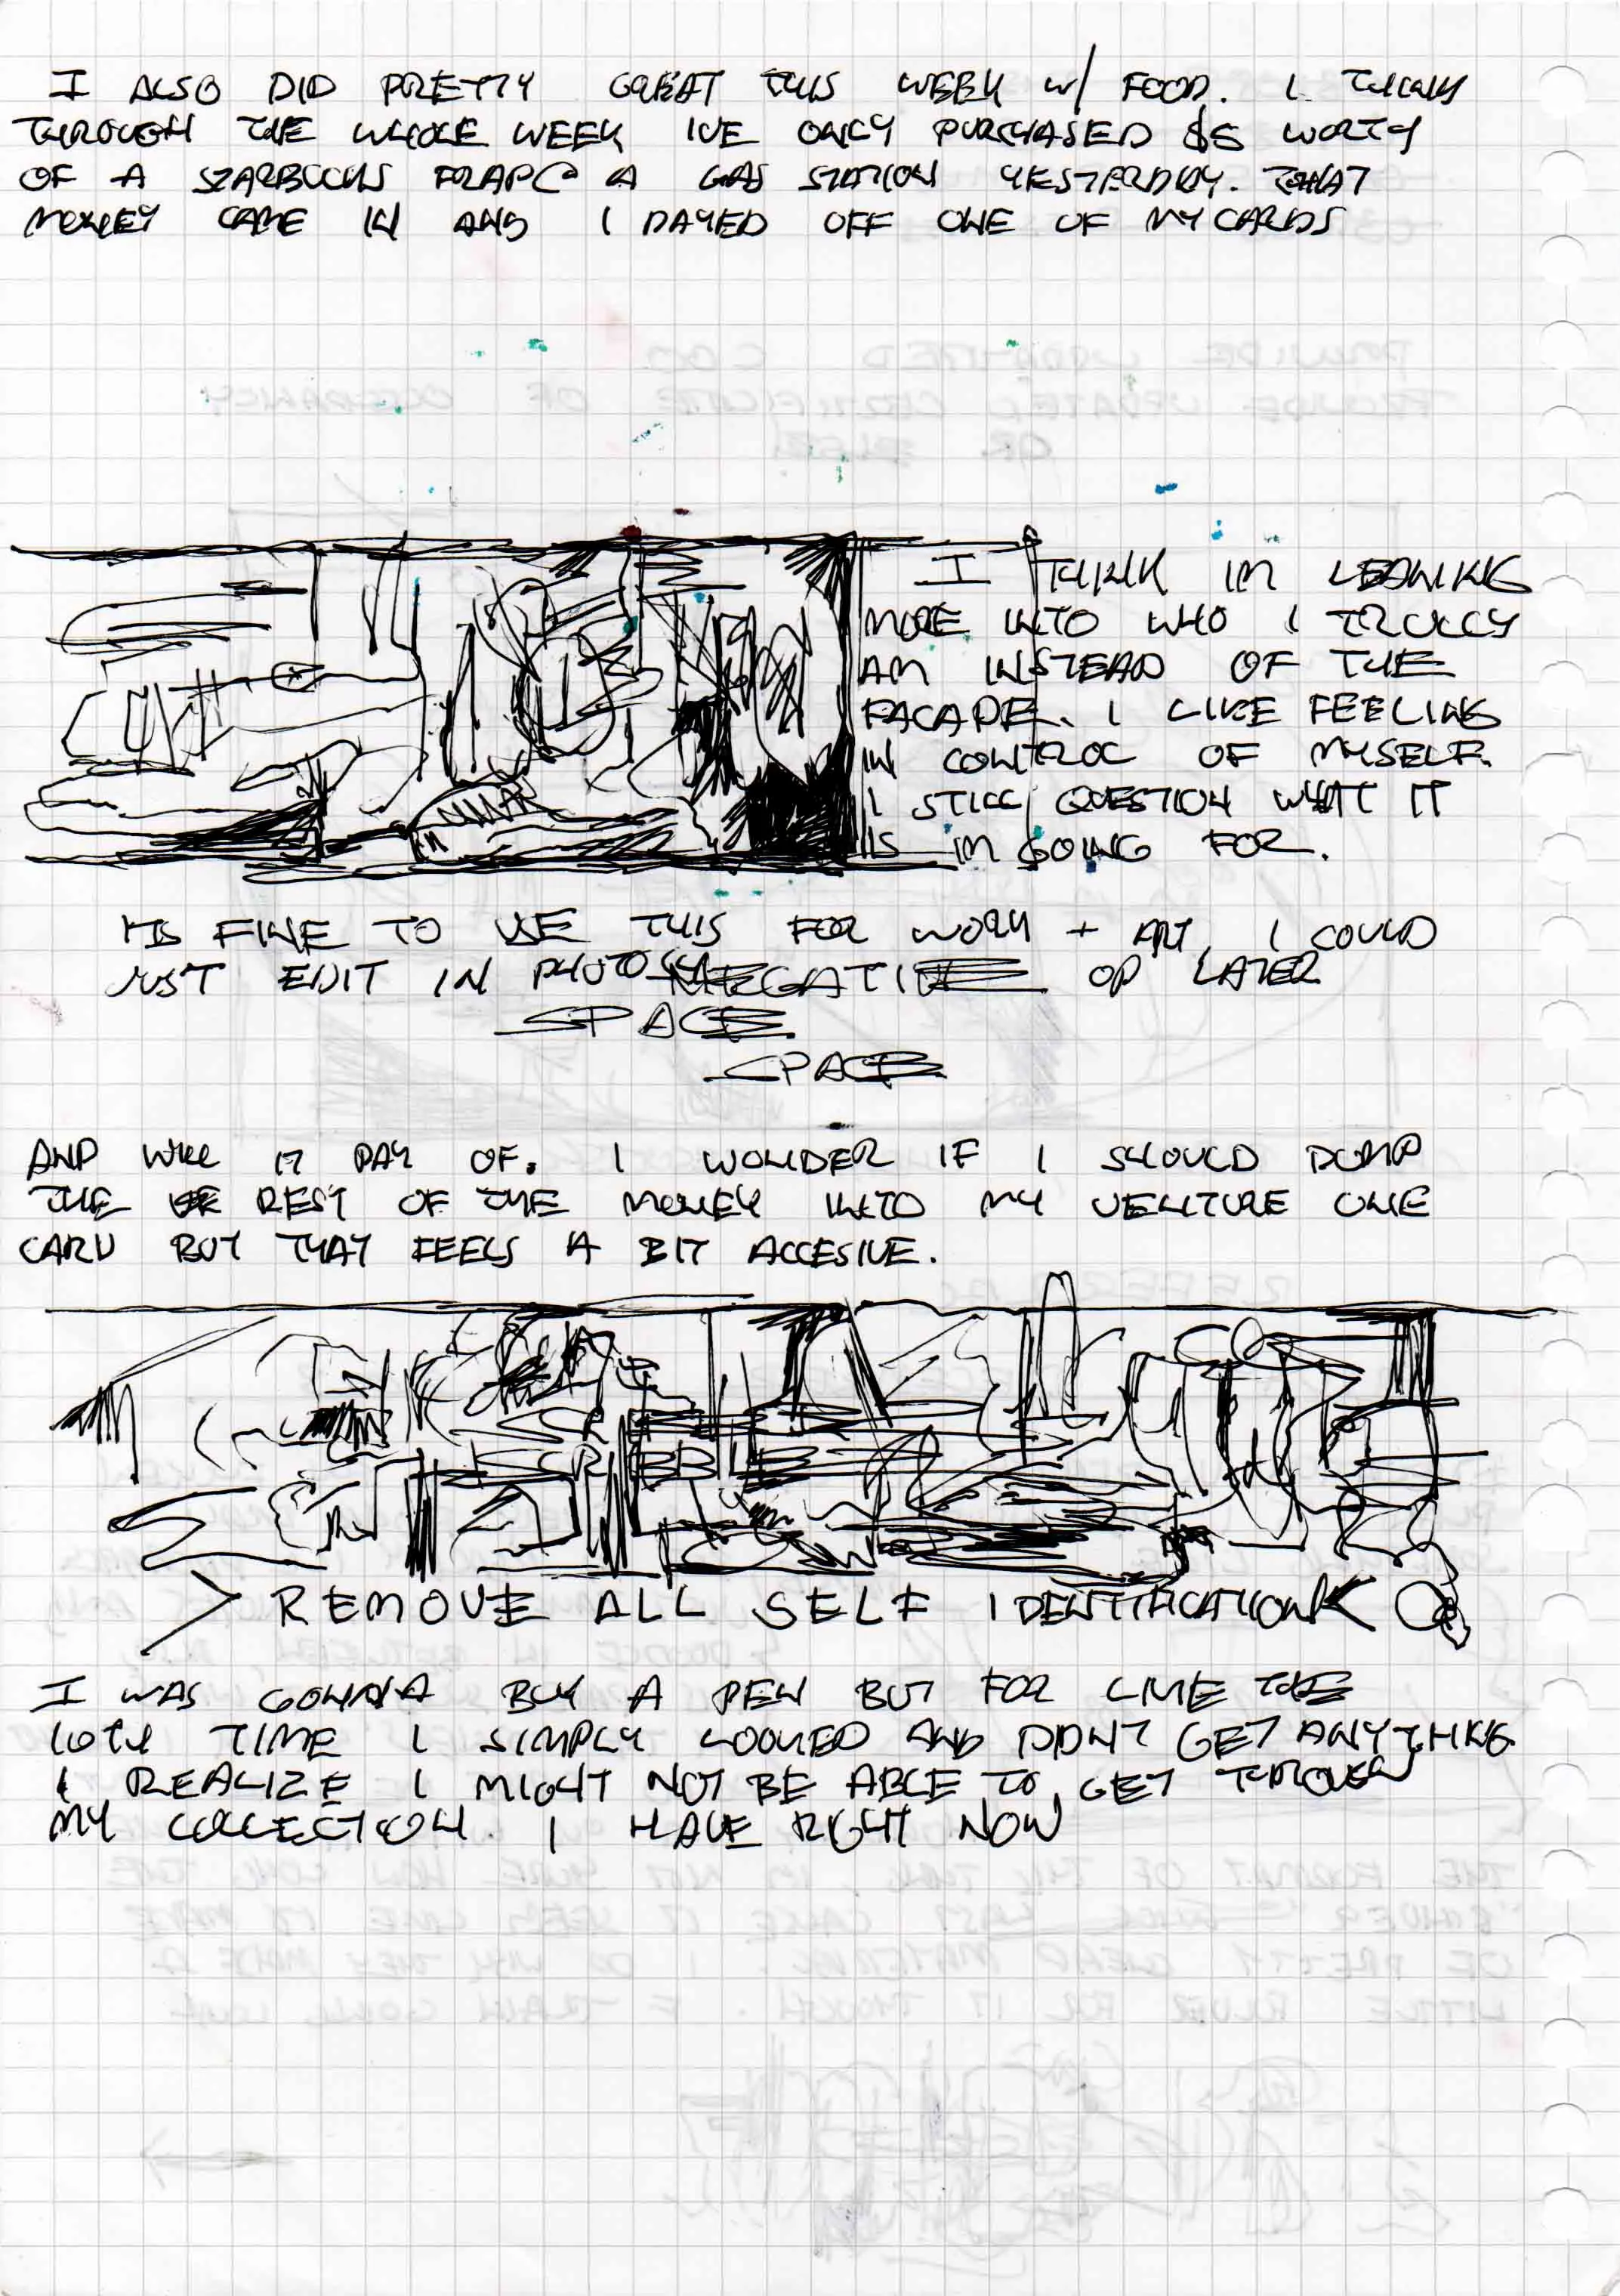 I ALSO DID PRETTY GREAT THIS WEEK W/ FOOD. I THINK
THROUGH THE WHOLE WEEK IVE ONLY PURCHASED $5 WORTH
OF A STARBUCKS FRAPP @ A GAS STATION YESTERDAY. THAT
MONEY CAME IN AND I PAYED OFF ONE OF MY CARDS
I THINK IM LEANING
MORE INTO WHO I TRULLY
AM INSTEAD OF THE
FACADE. I LIKE FEELING
IN CONTROL OF MYSELF.
I STILL QUESTION WHAT IT
IS IM GOING FOR.
ITS FINE TO USE THIS FOR WORK + ART, I COULD
JUST EDIT IN PHOTO NEGATIVE OP LATER
SPACE
SPACE
AND WILL IT PAY OF. I WONDER IF I SHOULD DUMP
THE REST OF THE MONEY INTO MY VENTURE ONE
CARD BUT THAT FEELS A BIT ACCESIVE.
SCRIBBLE
> REMOVE ALL SELF IDENTIFICATION <
I WAS GONNA BUY A PEN BUT FOR LIKE THE
10TH TIME I SIMPLY LOOKED AND DIDNT GET ANYTHING
I REALIZE I MIGHT NOT BE ABLE TO GET THROUGH
MY COLLECTION I HAVE RIGHT NOW